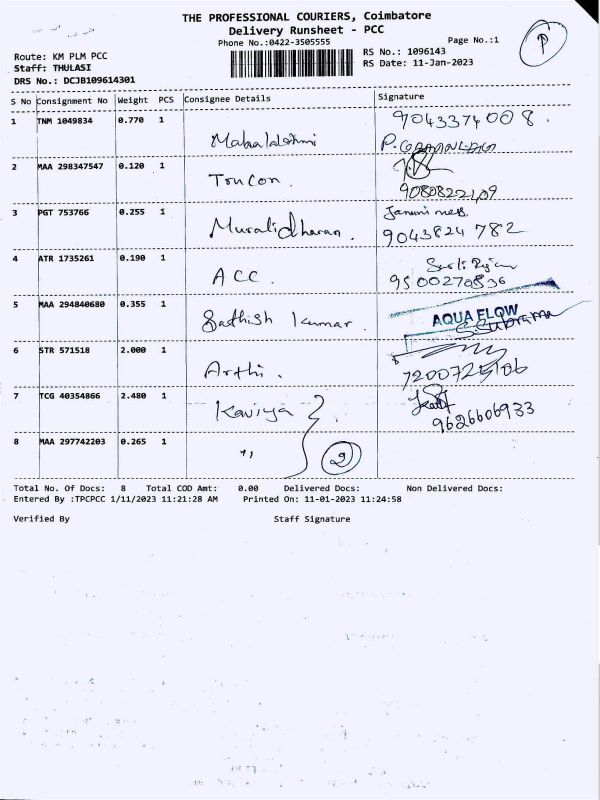 THE PROFESSIONAL COURIERS, Coimbatore
Delivery Runsheet - PCC
Phone No.:0422-3505555
Page No.:1
Route: KM PLM PCC
RS No.: 1096143
Staff: THULASI
RS Date: 11-Jan-2023
DRS No.: DCJB109614301
S No Consignment No Weight PCS Consignee Details Signature
1 TNM 1049834 0.770 1 9043374008.
Mahalalakshmi
2 MAA 298347547 0.120 1
Trucon.
3 PGT 753766 0.255 1
Muralidharan. 9043824 782
4 ATR 1735261 0.190 1
ACC. 9500270836
5 MAA 294840680 0.355 1 AQUA FLOW
Sathish Kumar.
6 STR 571518 2.000 1
Arthi.
7 TCG 40354866 2.480 1
Kaviya 9626606933
8 MAA 297742203 0.265 1
" 2
Total No. Of Docs: 8 Total COD Amt: 0.00 Delivered Docs: Non Delivered Docs:
Entered By :TPCPCC 1/11/2023 11:21:28 AM Printed On: 11-01-2023 11:24:58
Verified By Staff Signature